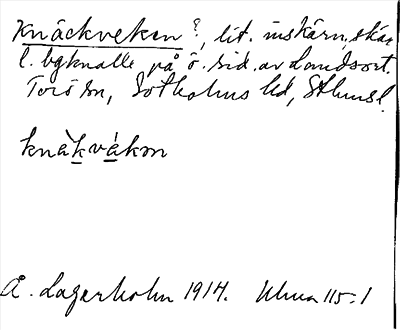 Knäckveken ?, lit. inskärn., skär
l. bgknalle på ö. sid. av Landsort.
Torö sn, Sotholms hd, Sthmsl.
knäkvàkɷn
Å. Lagerholm 1914. Uhua 115:1